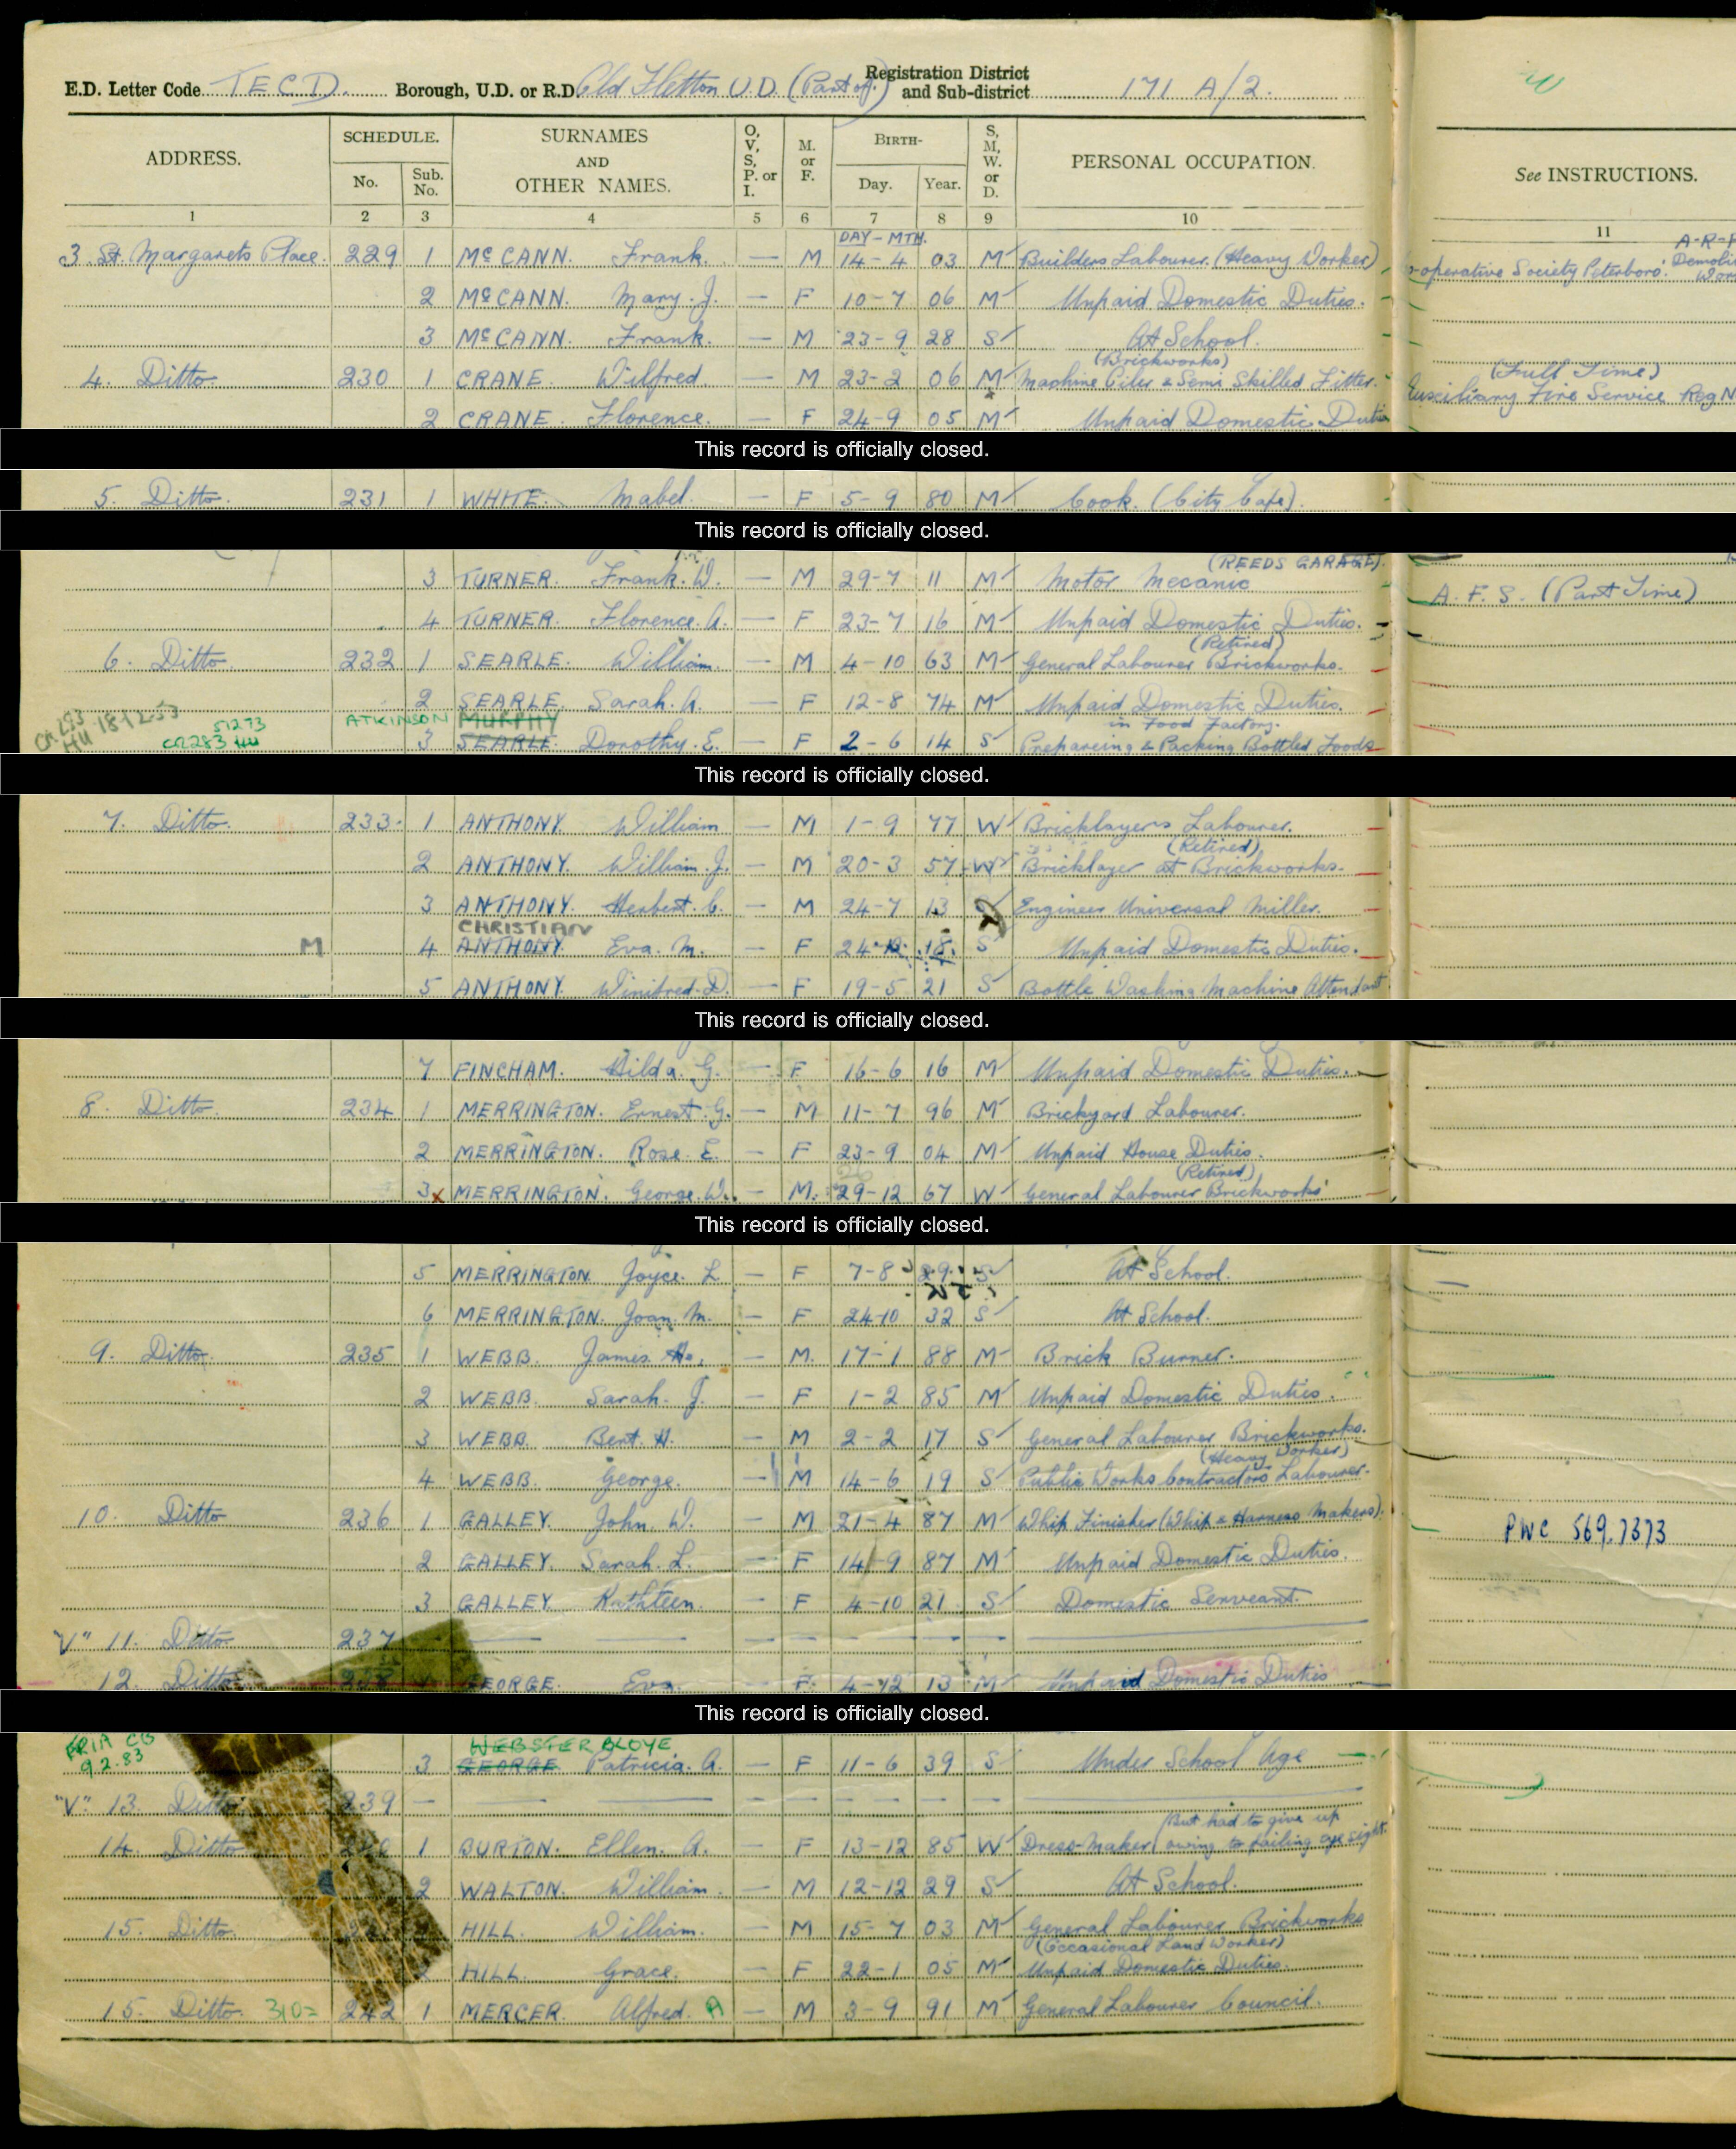 E.D. Letter Code TECD. Borough, U.D. or R.D. Old Fletton U.D. (Part of) Registration District and Sub-district 171 A/2.
ADDRESS. SCHEDULE. No. Sub. No. SURNAMES AND OTHER NAMES. O, V, S, P. or I. M. or F. BIRTH- Day. Year. S, M, W. or D. PERSONAL OCCUPATION. See INSTRUCTIONS.
1 2 3 4 5 6 7 8 9 10 11
DAY - MTH. A-R-P
3 St. Margarets Place. 229 1 McCANN. Frank. — M 14-4 03 M Builders Labourer. (Heavy Worker) o-operative Society Peterboro'.
2 McCANN. Mary. J. — F 10-7 06 M Unpaid Domestic Duties.
3 McCANN. Frank. — M 23-9 28 S At School.
(Brickworks) (Full Time)
4. Ditto. 230 1 CRANE. Wilfred. — M 23-2 06 M Machine Oiler & Semi Skilled Fitter. Auxiliary Fire Service Reg N
2 CRANE. Florence. — F 24-9 05 M Unpaid Domestic Duties
This record is officially closed.
5. Ditto. 231 1 WHITE. Mabel. — F 5-9 80 M Cook. (City Cafe).
This record is officially closed.
(REEDS GARAGE).
3 TURNER. Frank. W. — M 29-7 11 M Motor Mecanic A. F. S. (Part Time)
4 TURNER. Florence. A. — F 23-7 16 M Unpaid Domestic Duties.
(Retired)
6. Ditto. 232 1 SEARLE. William. — M 4-10 63 M General Labourer Brickworks.
2 SEARLE. Sarah. A. — F 12-8 74 M Unpaid Domestic Duties.
CR 283 HU 18-12-53 51273 ATKINSON MURPHY in Food Factory.
CR283 HU 3 SEARLE. Dorothy. E. — F 2-6 14 S Prepareing & Packing Bottled Foods
This record is officially closed.
7. Ditto. 233. 1 ANTHONY. William — M 1-9 77 W Bricklayers Labourer.
(Retired)
2 ANTHONY. William. J. — M 20-3 57 W Bricklayer at Brickworks.
3 ANTHONY. Herbert. C. — M 24-7 13 Engineer Universal Miller.
CHRISTIAN
M 4 ANTHONY Eva. M. — F 24-12 18. S Unpaid Domestic Duties.
5 ANTHONY. Winifred. D. — F 19-5 21 S Bottle Washing Machine Attendant
This record is officially closed.
7 FINCHAM. Hilda. G. — F 16-6 16 M Unpaid Domestic Duties.
8. Ditto. 234 1 MERRINGTON. Ernest. G. — M 11-7 96 M Brickyard Labourer.
2 MERRINGTON. Rose. E. — F 23-9 04 M Unpaid House Duties.
(Retired)
3x MERRINGTON. George. W. — M. 29-12 67 W General Labourer Brickworks
This record is officially closed.
5 MERRINGTON Joyce. L — F 7-8 29 S At School.
6 MERRINGTON. Joan. M. — F 24-10 32 S At School.
9. Ditto. 235 1 WEBB. James. — M. 17-1 88 M Brick Burner.
2 WEBB. Sarah. J. — F 1-2 85 M Unpaid Domestic Duties.
3 WEBB. Bert. H. — M 2-2 17 S General Labourer Brickworks.
(Heavy Worker)
4 WEBB. George. — M 14-6 19 S Public Works Contractors Labourer.
10. Ditto 236 1 GALLEY. John. W. — M 21-4 87 M Whip Finisher (Whip & Harness Makers). PWC 569.7373
2 GALLEY. Sarah. L. — F 14-9 87 M Unpaid Domestic Duties.
3 GALLEY Kathleen. — F 4-10 21 S Domestic Serveant.
"V" 11. Ditto 237 — — — — — — —
12. Ditto 238 GEORGE. Eva. F. 4-12 13 M Unpaid Domestic Duties
This record is officially closed.
9.2.83 WEBSTER BLOYE
3 GEORGE Patricia. A. — F 11-6 39 S Under School Age
"V" 13. Ditto 239 — — — — — — — —
(But had to give up
14. Ditto 1 BURTON. Ellen. A. — F 13-12 85 W Dress-Maker owing to failing eye sight.
2 WALTON. William. — M 12-12 29 S At School.
15. Ditto. HILL. William. — M 15-7 03 M General Labourer Brickworks
(Occasional Land Worker)
2 HILL. Grace. — F 22-1 05 M Unpaid Domestic Duties.
15. Ditto. 310= 242 1 MERCER. Alfred. A — M 3-9 91 M General Labourer Council.